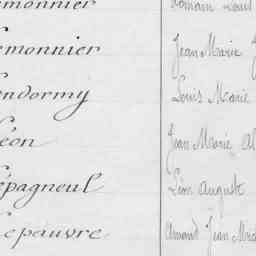 monnier Romain Louis
emonnier Jean Marie
endormy Louis Marie
éon Jean Marie Al
épagneul Léon Auguste
epauvre Amand Jean